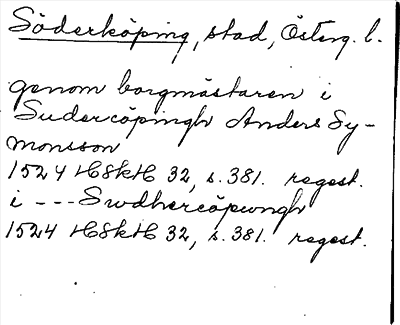 Söderköping, stad, Österg. l.
genom borgmästaren i
Sudercöpingh Anders Sy-
monsson
1524 HSkH 32, s. 381. regest.
i --- Swdhercöpungh
1524 HSkH 32, s. 381. regest.